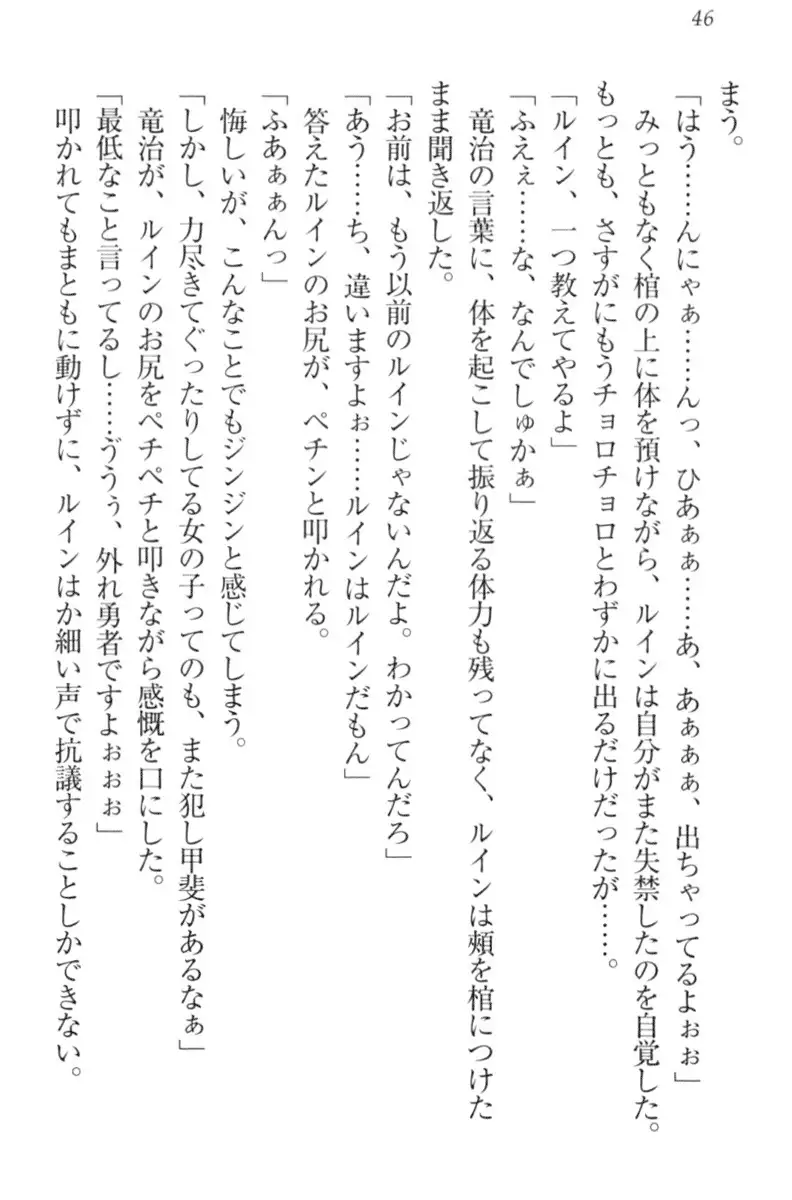 46
まう。
「はう……んにゃぁ……んっ、ひあぁぁ……あ、あぁぁぁ、出ちゃってるよぉぉ」
みっともなく棺の上に体を預けながら、ルインは自分がまた失禁したのを自覚した。
もっとも、さすがにもうチョロチョロとわずかに出るだけだったが……。
「ルイン、一つ教えてやるよ」
「ふえぇ……な、なんでしゅかぁ」
竜治の言葉に、体を起こして振り返る体力も残ってなく、ルインは頰を棺につけた
まま聞き返した。
「お前は、もう以前のルインじゃないんだよ。わかってんだろ」
「あう……ち、違いますよぉ……ルインはルインだもん」
答えたルインのお尻が、ペチンと叩かれる。
「ふあぁぁんっ」
悔しいが、こんなことでもジンジンと感じてしまう。
「しかし、力尽きてぐったりしてる女の子ってのも、また犯し甲斐があるなぁ」
竜治が、ルインのお尻をペチペチと叩きながら感慨を口にした。
「最低なこと言ってるし……うぅぅ、外れ勇者ですよぉぉぉ」
叩かれてもまともに動けずに、ルインはか細い声で抗議することしかできない。